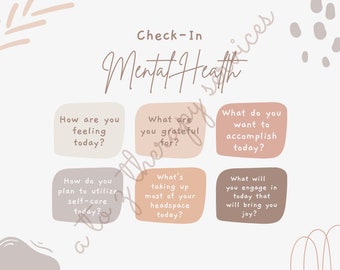 Check-In
Mental Health
How are you
feeling
today?
What are
you grateful
for?
What do you
want to
accomplish
today?
How do you
plan to utilize
self-care
today?
What's
taking up
most of your
headspace
today?
What will
you engage in
today that
will bring you
joy?
a to z therapy services